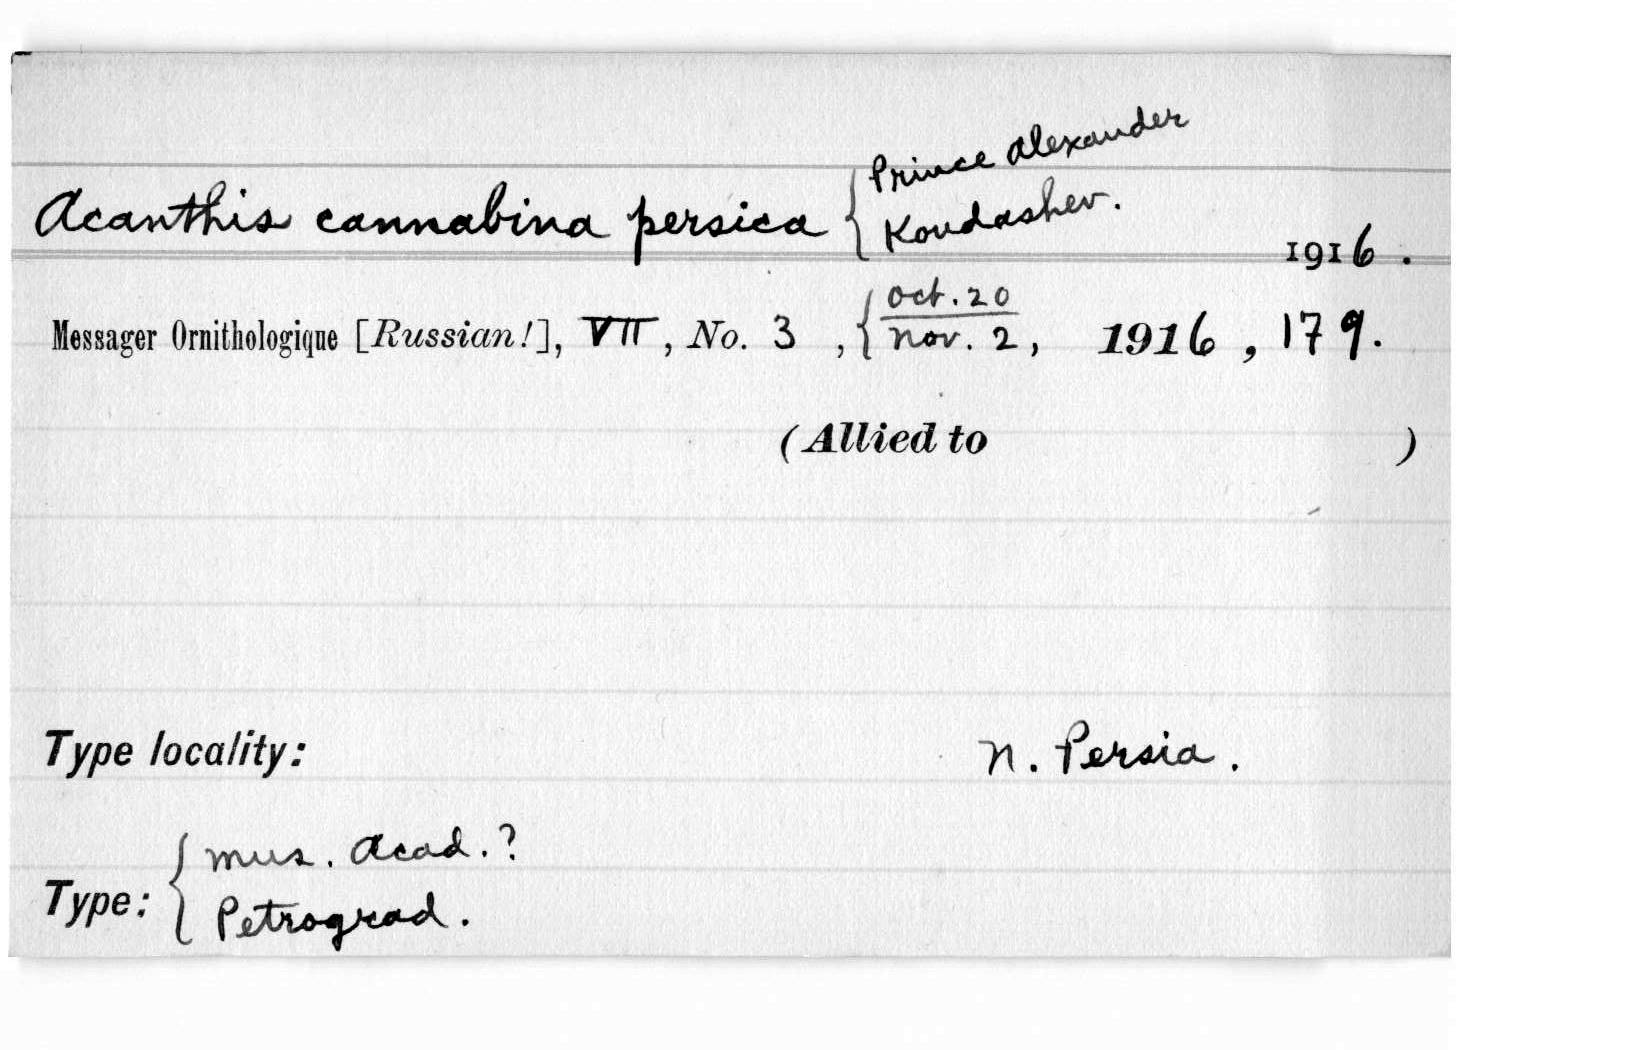 Prince Alexander
Acanthis cannabina persica { Koudashev. 1916.
Oct. 20
Messager Ornithologique [Russian!], VII, No. 3, { Nov. 2, 1916, 179.
(Allied to )
Type locality: N. Persia.
Mus. Acad.?
Type: { Petrograd.